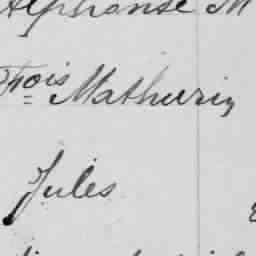 Alphonse M
Fois Mathurin
Jules